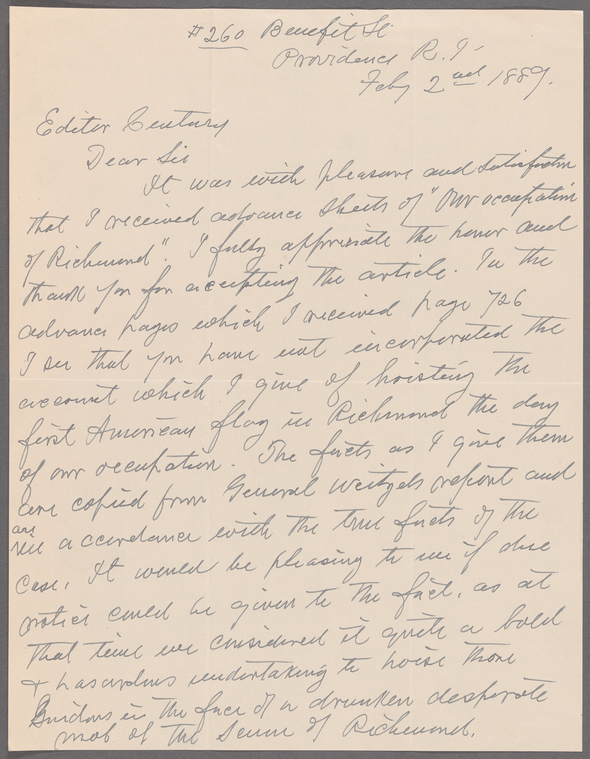 #260 Benefit St
Providence R.I.
Feby 2nd 1889.
Editor Century
Dear Sir
It was with pleasure and satisfaction
that I received advance sheets of "Our occupation
of Richmond". I fully appreciate the honor and
thank you for accepting the article. In the
advance pages which I received page 726
I see that you have not incorporated the
account which I give of hoisting the
first American flag in Richmond the day
of our occupation. The facts as I give them
are copied from General Weitzels report and
are
in accordance with the true facts of the
case. It would be pleasing to me if due
notice could be given to the fact, as at
that time we considered it quite a bold
& hasardous undertaking to hoise those
Guidons in the face of a drunken desperate
mob of the Scum of Richmond.